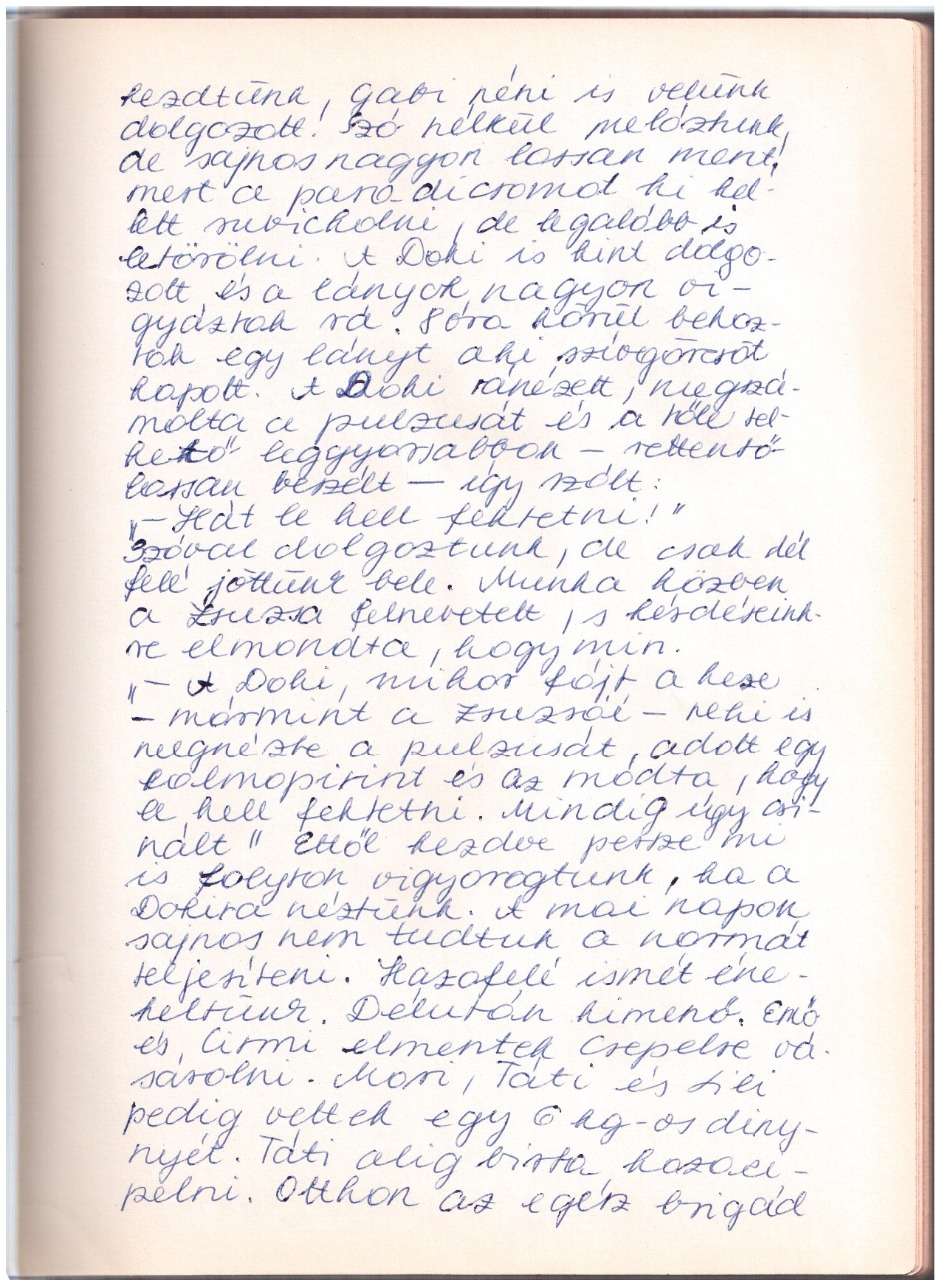 kezdtünk, Gabi néni is velünk
dolgozott! Szó nélkül melóztunk,
de sajnos nagyon lassan ment,
mert a paradicsomot ki kel-
lett suvickolni, de legalább is
letörölni. A Doki is kint dolgo-
zott, és a lányok nagyon vi-
gyáztak rá. 8 óra körül behoz-
tak egy lányt aki szívgörcsöt
kapott. A Doki ránézett, megszá-
molta a pulzusát és a tőle tel-
hető leggyorsabban – rettentő
lassan beszélt – így szólt:
„– Hát le kell fektetni!"
Szóval dolgoztunk, de csak dél
felé jöttünk bele. Munka közben
a Zsuzsa felnevetett, s kérdéseink-
re elmondta, hogy min.
„– A Doki, mikor fájt a keze
– mármint a Zsuzsáé – neki is
megnézte a pulzusát, adott egy
kalmopirint és az módta, hogy
le kell fektetni. Mindig úgy csi-
nált" Ettől kezdve persze mi
is folyton vigyorogtunk, ha a
Dokira néztünk. A mai napon
sajnos nem tudtuk a normát
teljesíteni. Hazafelé ismét éne-
keltünk. Délután kimenő. Emő
és Cirmi elmentek Csepelre vá-
sárolni. Mari, Táti és Lili
pedig vettek egy 6 kg-os diny-
nyét. Táti alig bírta hazaci-
pelni. Otthon az egész brigád